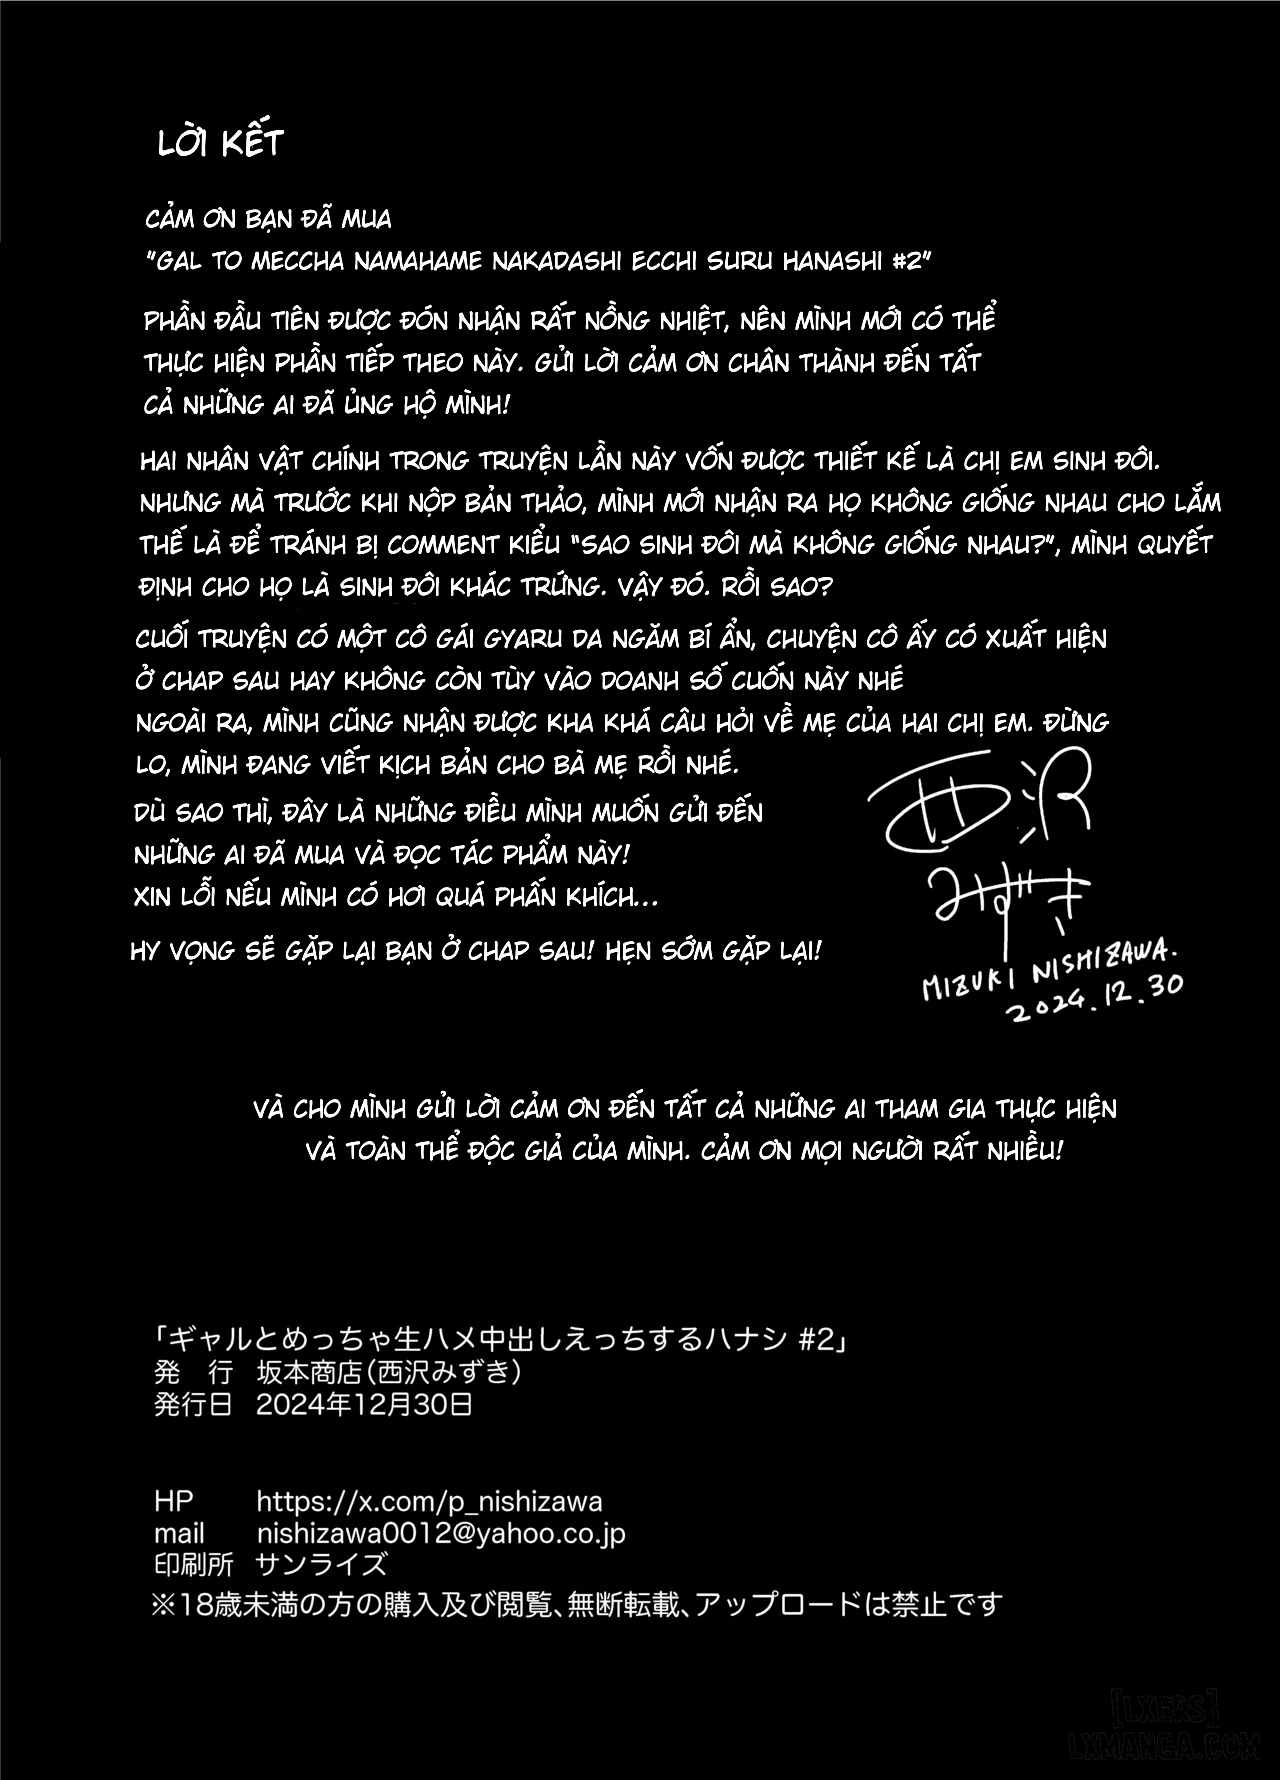 LỜI KẾT
CẢM ƠN BẠN ĐÃ MUA
"GAL TO MECCHA NAMAHAME NAKADASHI ECCHI SURU HANASHI #2"
PHẦN ĐẦU TIÊN ĐƯỢC ĐÓN NHẬN RẤT NỒNG NHIỆT, NÊN MÌNH MỚI CÓ THỂ
THỰC HIỆN PHẦN TIẾP THEO NÀY. GỬI LỜI CẢM ƠN CHÂN THÀNH ĐẾN TẤT
CẢ NHỮNG AI ĐÃ ỦNG HỘ MÌNH!
HAI NHÂN VẬT CHÍNH TRONG TRUYỆN LẦN NÀY VỐN ĐƯỢC THIẾT KẾ LÀ CHỊ EM SINH ĐÔI.
NHƯNG MÀ TRƯỚC KHI NỘP BẢN THẢO, MÌNH MỚI NHẬN RA HỌ KHÔNG GIỐNG NHAU CHO LẮM
THẾ LÀ ĐỂ TRÁNH BỊ COMMENT KIỂU "SAO SINH ĐÔI MÀ KHÔNG GIỐNG NHAU?", MÌNH QUYẾT
ĐỊNH CHO HỌ LÀ SINH ĐÔI KHÁC TRỨNG. VẬY ĐÓ. RỒI SAO?
CUỐI TRUYỆN CÓ MỘT CÔ GÁI GYARU DA NGĂM BÍ ẨN, CHUYỆN CÔ ẤY CÓ XUẤT HIỆN
Ở CHAP SAU HAY KHÔNG CÒN TÙY VÀO DOANH SỐ CUỐN NÀY NHÉ
NGOÀI RA, MÌNH CŨNG NHẬN ĐƯỢC KHA KHÁ CÂU HỎI VỀ MẸ CỦA HAI CHỊ EM. ĐỪNG
LO, MÌNH ĐANG VIẾT KỊCH BẢN CHO BÀ MẸ RỒI NHÉ.
DÙ SAO THÌ, ĐÂY LÀ NHỮNG ĐIỀU MÌNH MUỐN GỬI ĐẾN
NHỮNG AI ĐÃ MUA VÀ ĐỌC TÁC PHẨM NÀY!
XIN LỖI NẾU MÌNH CÓ HƠI QUÁ PHẤN KHÍCH...
HY VỌNG SẼ GẶP LẠI BẠN Ở CHAP SAU! HẸN SỚM GẶP LẠI!
西沢
みずき
MIZUKI NISHIZAWA.
2024.12.30
VÀ CHO MÌNH GỬI LỜI CẢM ƠN ĐẾN TẤT CẢ NHỮNG AI THAM GIA THỰC HIỆN
VÀ TOÀN THỂ ĐỘC GIẢ CỦA MÌNH. CẢM ƠN MỌI NGƯỜI RẤT NHIỀU!
「ギャルとめっちゃ生ハメ中出しえっちするハナシ #2」
発 行 坂本商店(西沢みずき)
発行日 2024年12月30日
HP https://x.com/p_nishizawa
mail nishizawa0012@yahoo.co.jp
印刷所 サンライズ
※18歳未満の方の購入及び閲覧、無断転載、アップロードは禁止です
[LXERS]
LXMANGA.COM